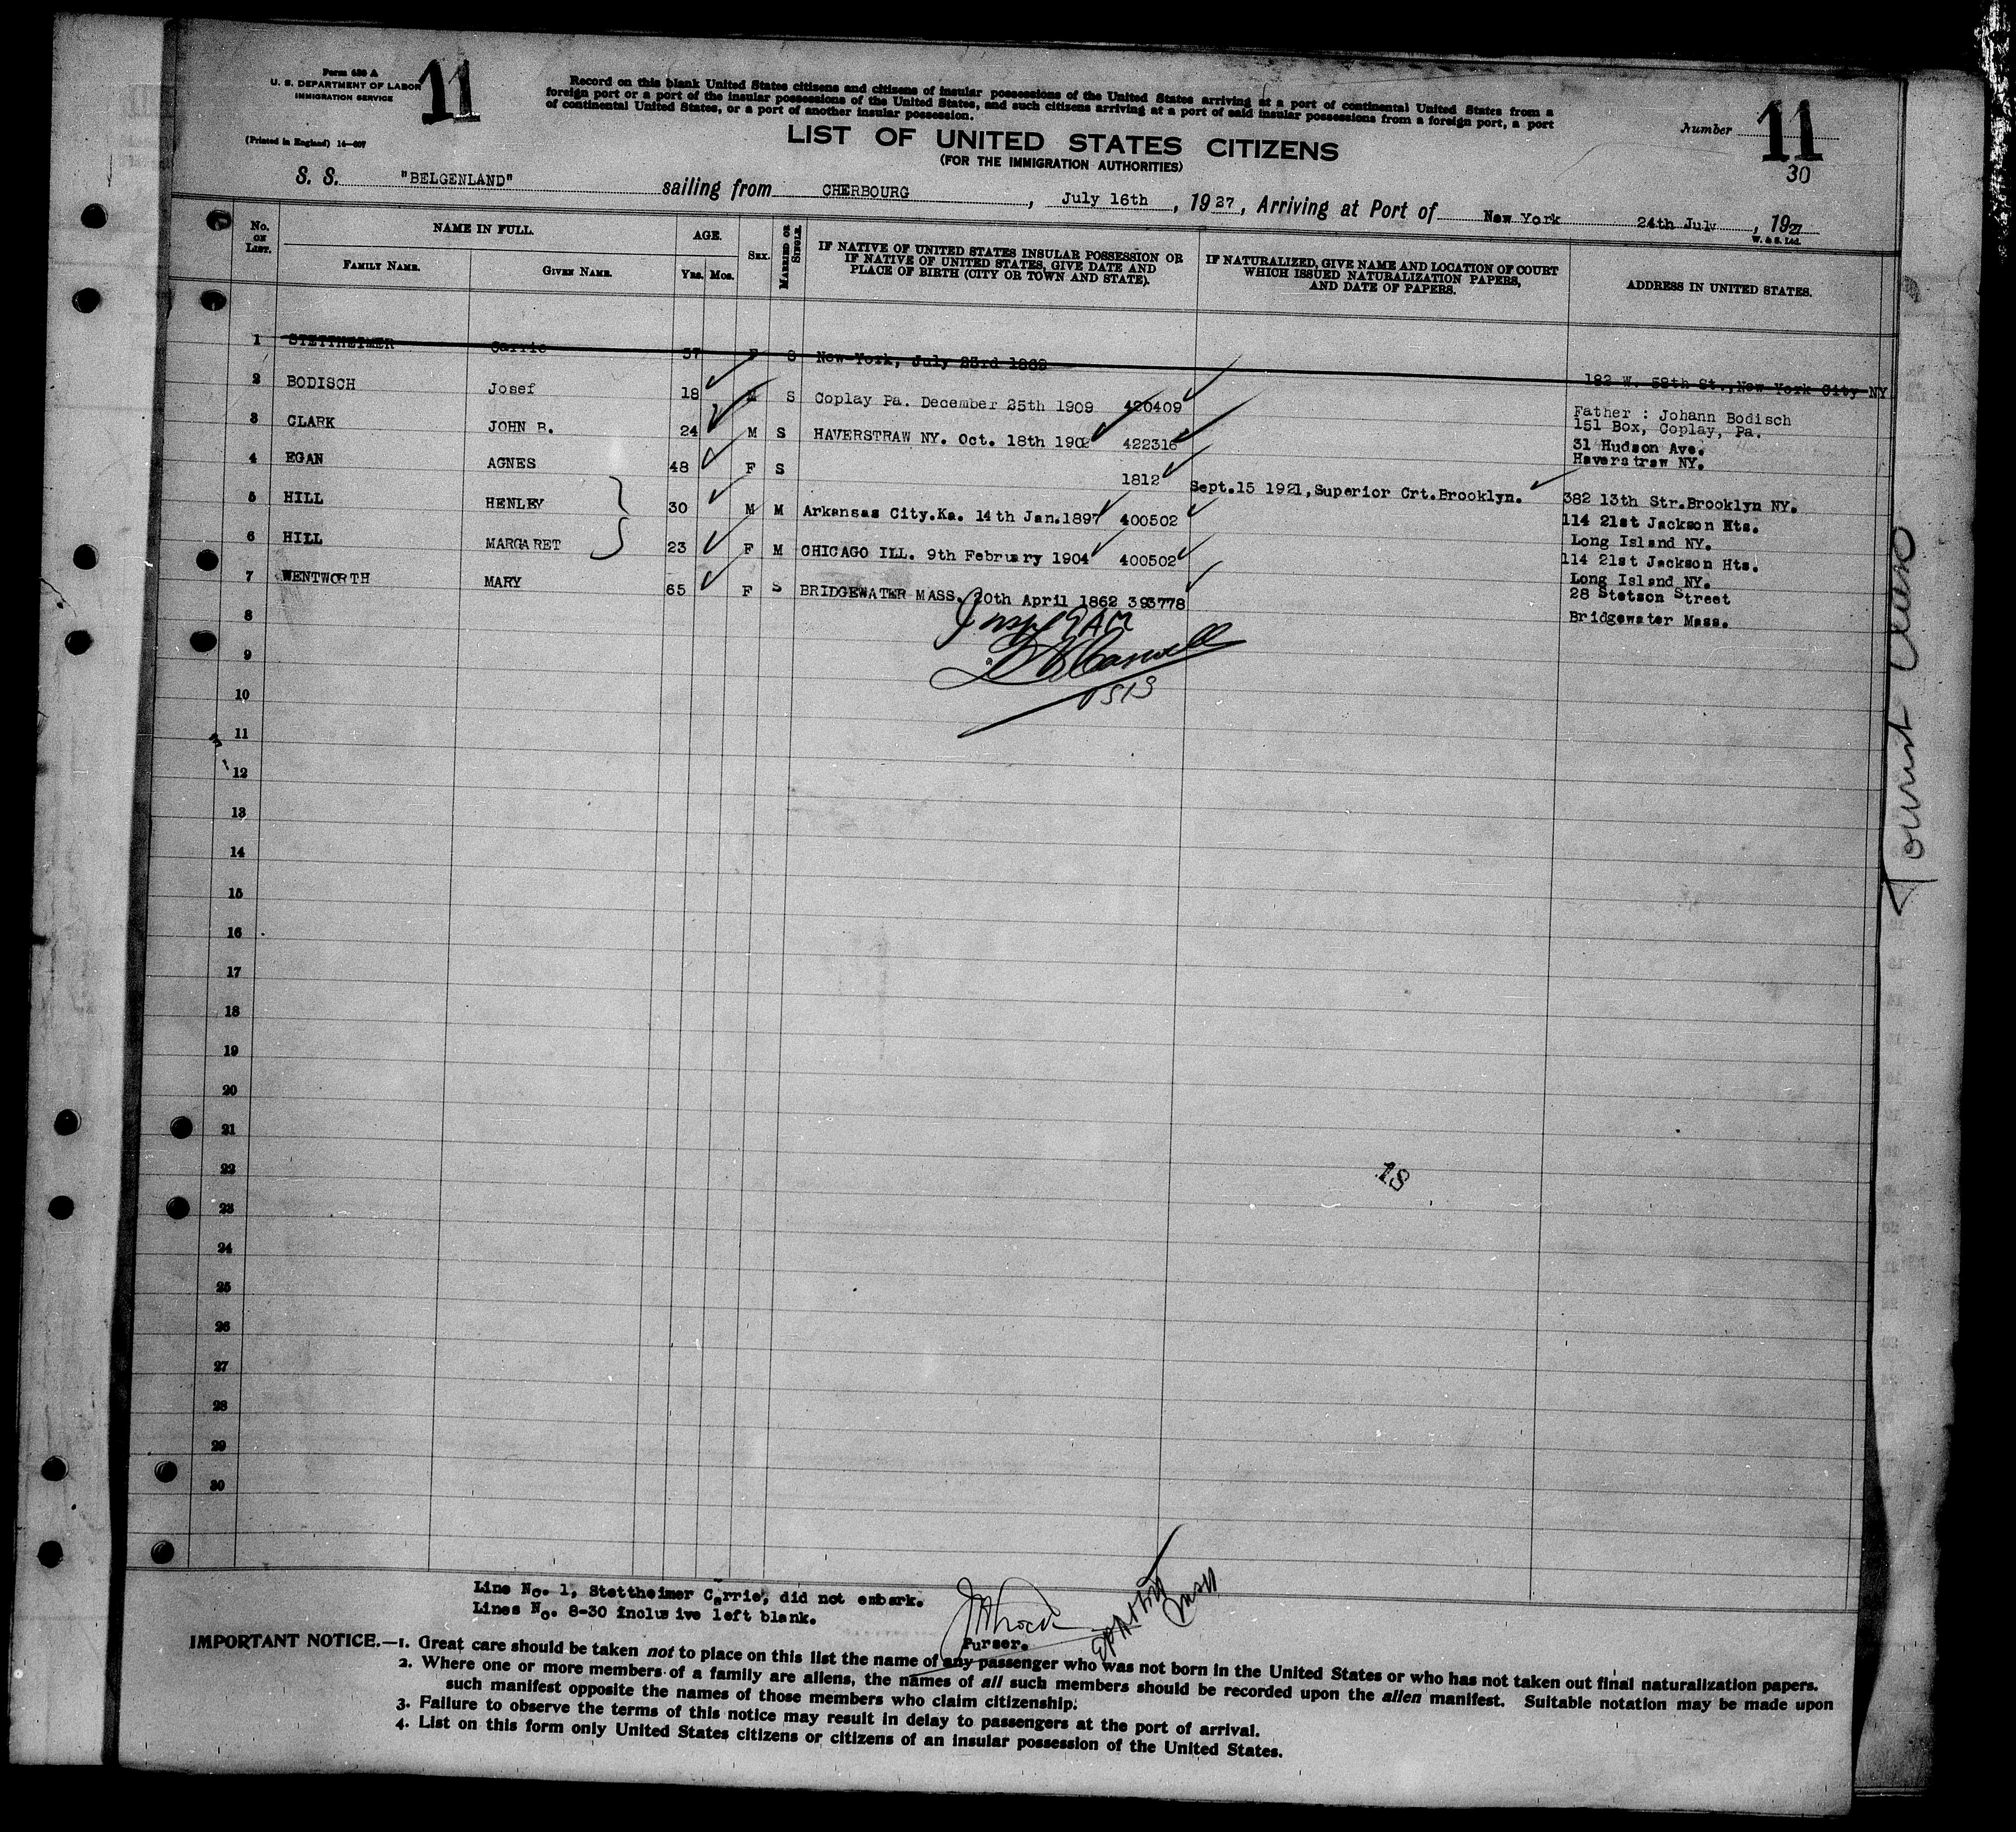 Form 630 A
U. S. DEPARTMENT OF LABOR
IMMIGRATION SERVICE
11
(Printed in England) 14—607
Record on this blank United States citizens and citizens of insular possessions of the United States arriving at a port of continental United States from a
foreign port or a port of the insular possessions of the United States, and such citizens arriving at a port of said insular possessions from a foreign port, a port
of continental United States, or a port of another insular possession.
LIST OF UNITED STATES CITIZENS
(FOR THE IMMIGRATION AUTHORITIES)
Number 11
30
S. S. "BELGENLAND" sailing from CHERBOURG, July 16th, 1927, Arriving at Port of New York 24th July, 1927
W. & S. Ltd.
No. ON LIST. NAME IN FULL. AGE. SEX. MARRIED OR SINGLE. IF NATIVE OF UNITED STATES INSULAR POSSESSION OR IF NATIVE OF UNITED STATES, GIVE DATE AND PLACE OF BIRTH (CITY OR TOWN AND STATE). IF NATURALIZED, GIVE NAME AND LOCATION OF COURT WHICH ISSUED NATURALIZATION PAPERS, AND DATE OF PAPERS. ADDRESS IN UNITED STATES.
FAMILY NAME. GIVEN NAME. Yrs. Mos.
1 STETTHEIMER Carrie 57 F S New-York, July 23rd 1869 182 W. 58th St.,New York City NY
2 BODISCH Josef 18 M S Coplay Pa. December 25th 1909 420409 Father : Johann Bodisch
151 Box, Coplay, Pa.
3 CLARK JOHN B. 24 M S HAVERSTRAW NY. Oct. 18th 1902 422316 31 Hudson Ave.
Haverstraw NY.
4 EGAN AGNES 48 F S 1812 Sept.15 1921,Superior Crt.Brooklyn. 382 13th Str.Brooklyn NY.
5 HILL HENLEY 30 M M Arkansas City.Ka. 14th Jan.1897 400502 114 21st Jackson Hts.
Long Island NY.
6 HILL MARGARET 23 F M CHICAGO ILL. 9th February 1904 400502 114 21st Jackson Hts.
Long Island NY.
7 WENTWORTH MARY 65 F S BRIDGEWATER MASS. 20th April 1862 393778 28 Stetson Street
Bridgewater Mass.
8
9
10
11
12
13
14
15
16
17
18
19
20
21
22
23
24
25
26
27
28
29
30
Tourist
Line No. 1, Stettheimer Carrie, did not embark.
Lines No. 8-30 inclusive left blank.
Purser.
IMPORTANT NOTICE.—1. Great care should be taken not to place on this list the name of any passenger who was not born in the United States or who has not taken out final naturalization papers.
2. Where one or more members of a family are aliens, the names of all such members should be recorded upon the alien manifest. Suitable notation may be made upon
such manifest opposite the names of those members who claim citizenship.
3. Failure to observe the terms of this notice may result in delay to passengers at the port of arrival.
4. List on this form only United States citizens or citizens of an insular possession of the United States.